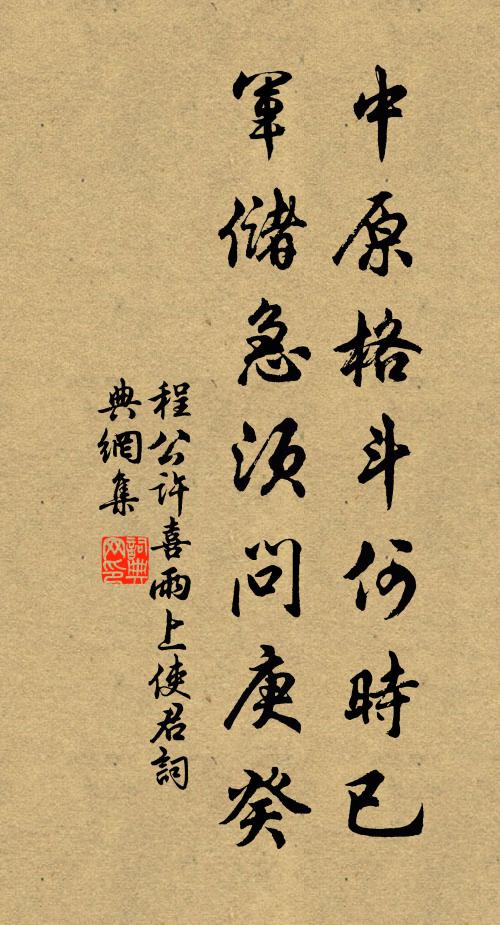 中原格斗何時已
軍儲急須問庚癸
程公許喜雨上使君詞
典網集
詞典網印